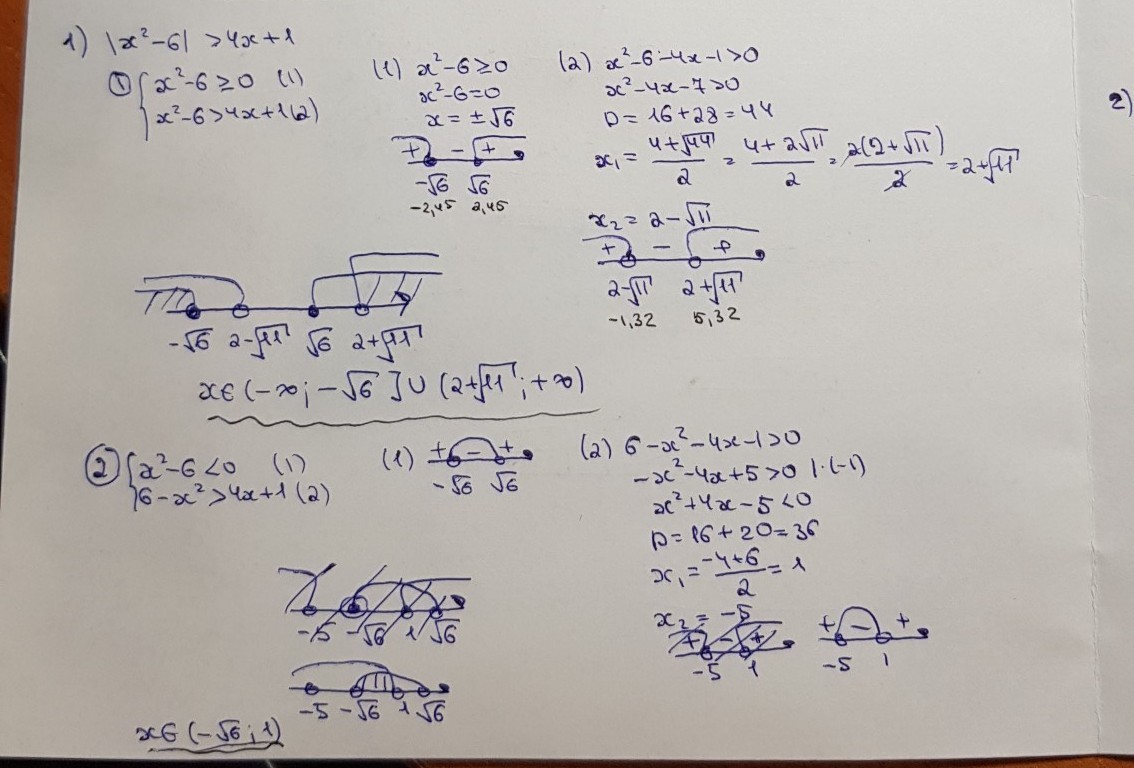 1) |x²-6| > 4x+1
① { x²-6 ≥ 0 (1)
x²-6 > 4x+1 (2)
(1) x²-6 ≥ 0
x²-6=0
x = ±√6
+ - +
-√6 √6
-2,45 2,45
(2) x²-6-4x-1>0
x²-4x-7>0
D = 16+28 = 44
x₁ = (4+√44)/2 = (4+2√11)/2 = 2(2+√11)/2 = 2+√11
x₂ = 2-√11
+ - +
2-√11 2+√11
-1,32 5,32
-√6 2-√11 √6 2+√11
x∈(-∞; -√6] ∪ (2+√11; +∞)
② { x²-6 < 0 (1)
6-x² > 4x+1 (2)
(1) + - +
-√6 √6
(2) 6-x²-4x-1>0
-x²-4x+5>0 |·(-1)
x²+4x-5<0
D = 16+20=36
x₁ = (-4+6)/2 = 1
x₂ = -5
+ - +
-5 1
+ - +
-5 1
-5 -√6 1 √6
-5 -√6 1 √6
x∈(-√6; 1)
2)